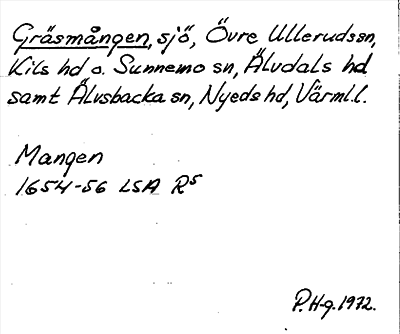 Gräsmången, sjö, Övre Ullerudssn,
Kils hd o. Sunnemo sn, Älvdals hd
samt Älvsbacka sn, Nyeds hd, Värml.l.
Mangen
1654-56 LSA R5
P. H-g. 1972.